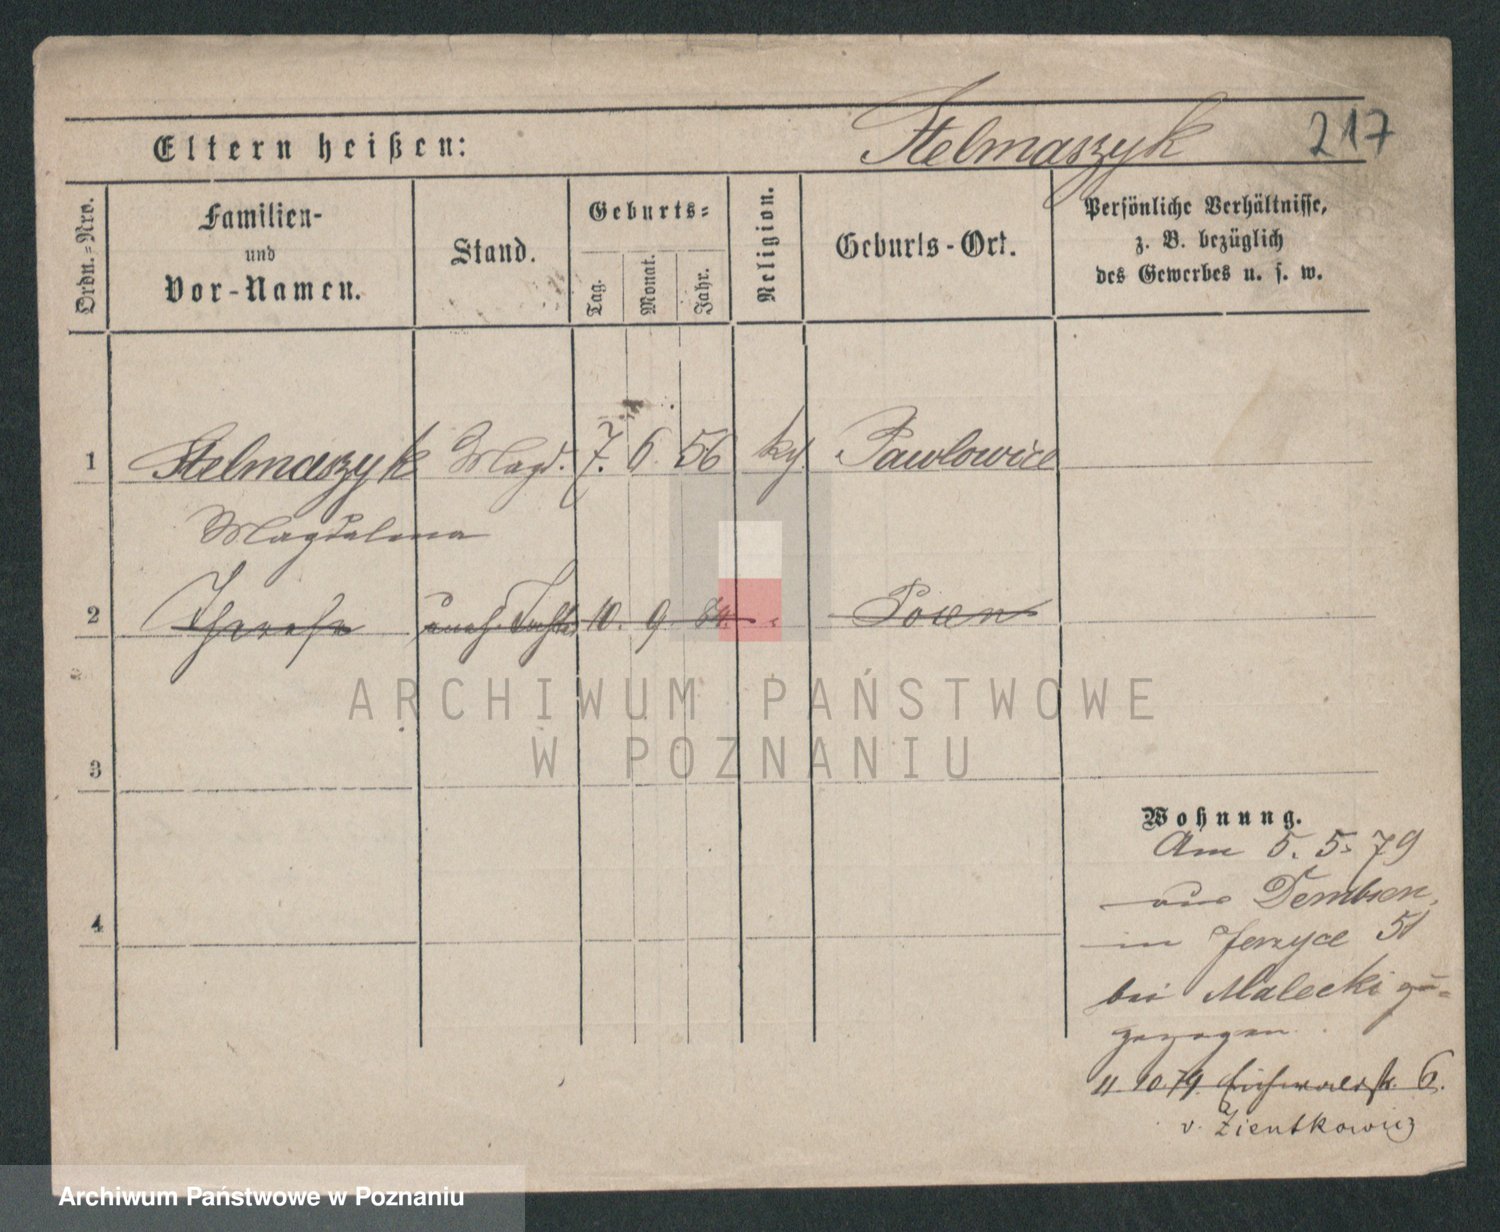 Eltern heißen: Stelmaszyk 217
Ordn.=Nro.
Familien-
und
Vor-Namen.
Stand.
Geburts=
Tag.
Monat.
Jahr.
Religion.
Geburts-Ort.
Persönliche Verhältnisse,
z. B. bezüglich
des Gewerbes u. s. w.
1 Stelmaszyk Magd. 7. 6 56 Pawlowice
Magdalena
2 Therese uneh. Tocht. 10. 9. Posen
3
4
Wohnung.
Am 5. 5. 79
aus Dembsen,
in Jerzyce 51
bei Malecki zu=
gezogen
11. 10. 79. Eichwaldstr. 6.
v. Zientkowicz
ARCHIWUM PAŃSTWOWE
W POZNANIU
Archiwum Państwowe w Poznaniu